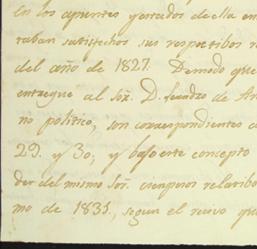 En los apuntes y estados de ella en
taban satisfechos sus respectibos
del año de 1827. De modo que
entregue al Sõr. D. Leandro de An
no politico, son correspondientes a
29. y 30; y bajo este concepto
der del mismo Sor. cien pesos relatibo
mo de 1831, segun el recivo que